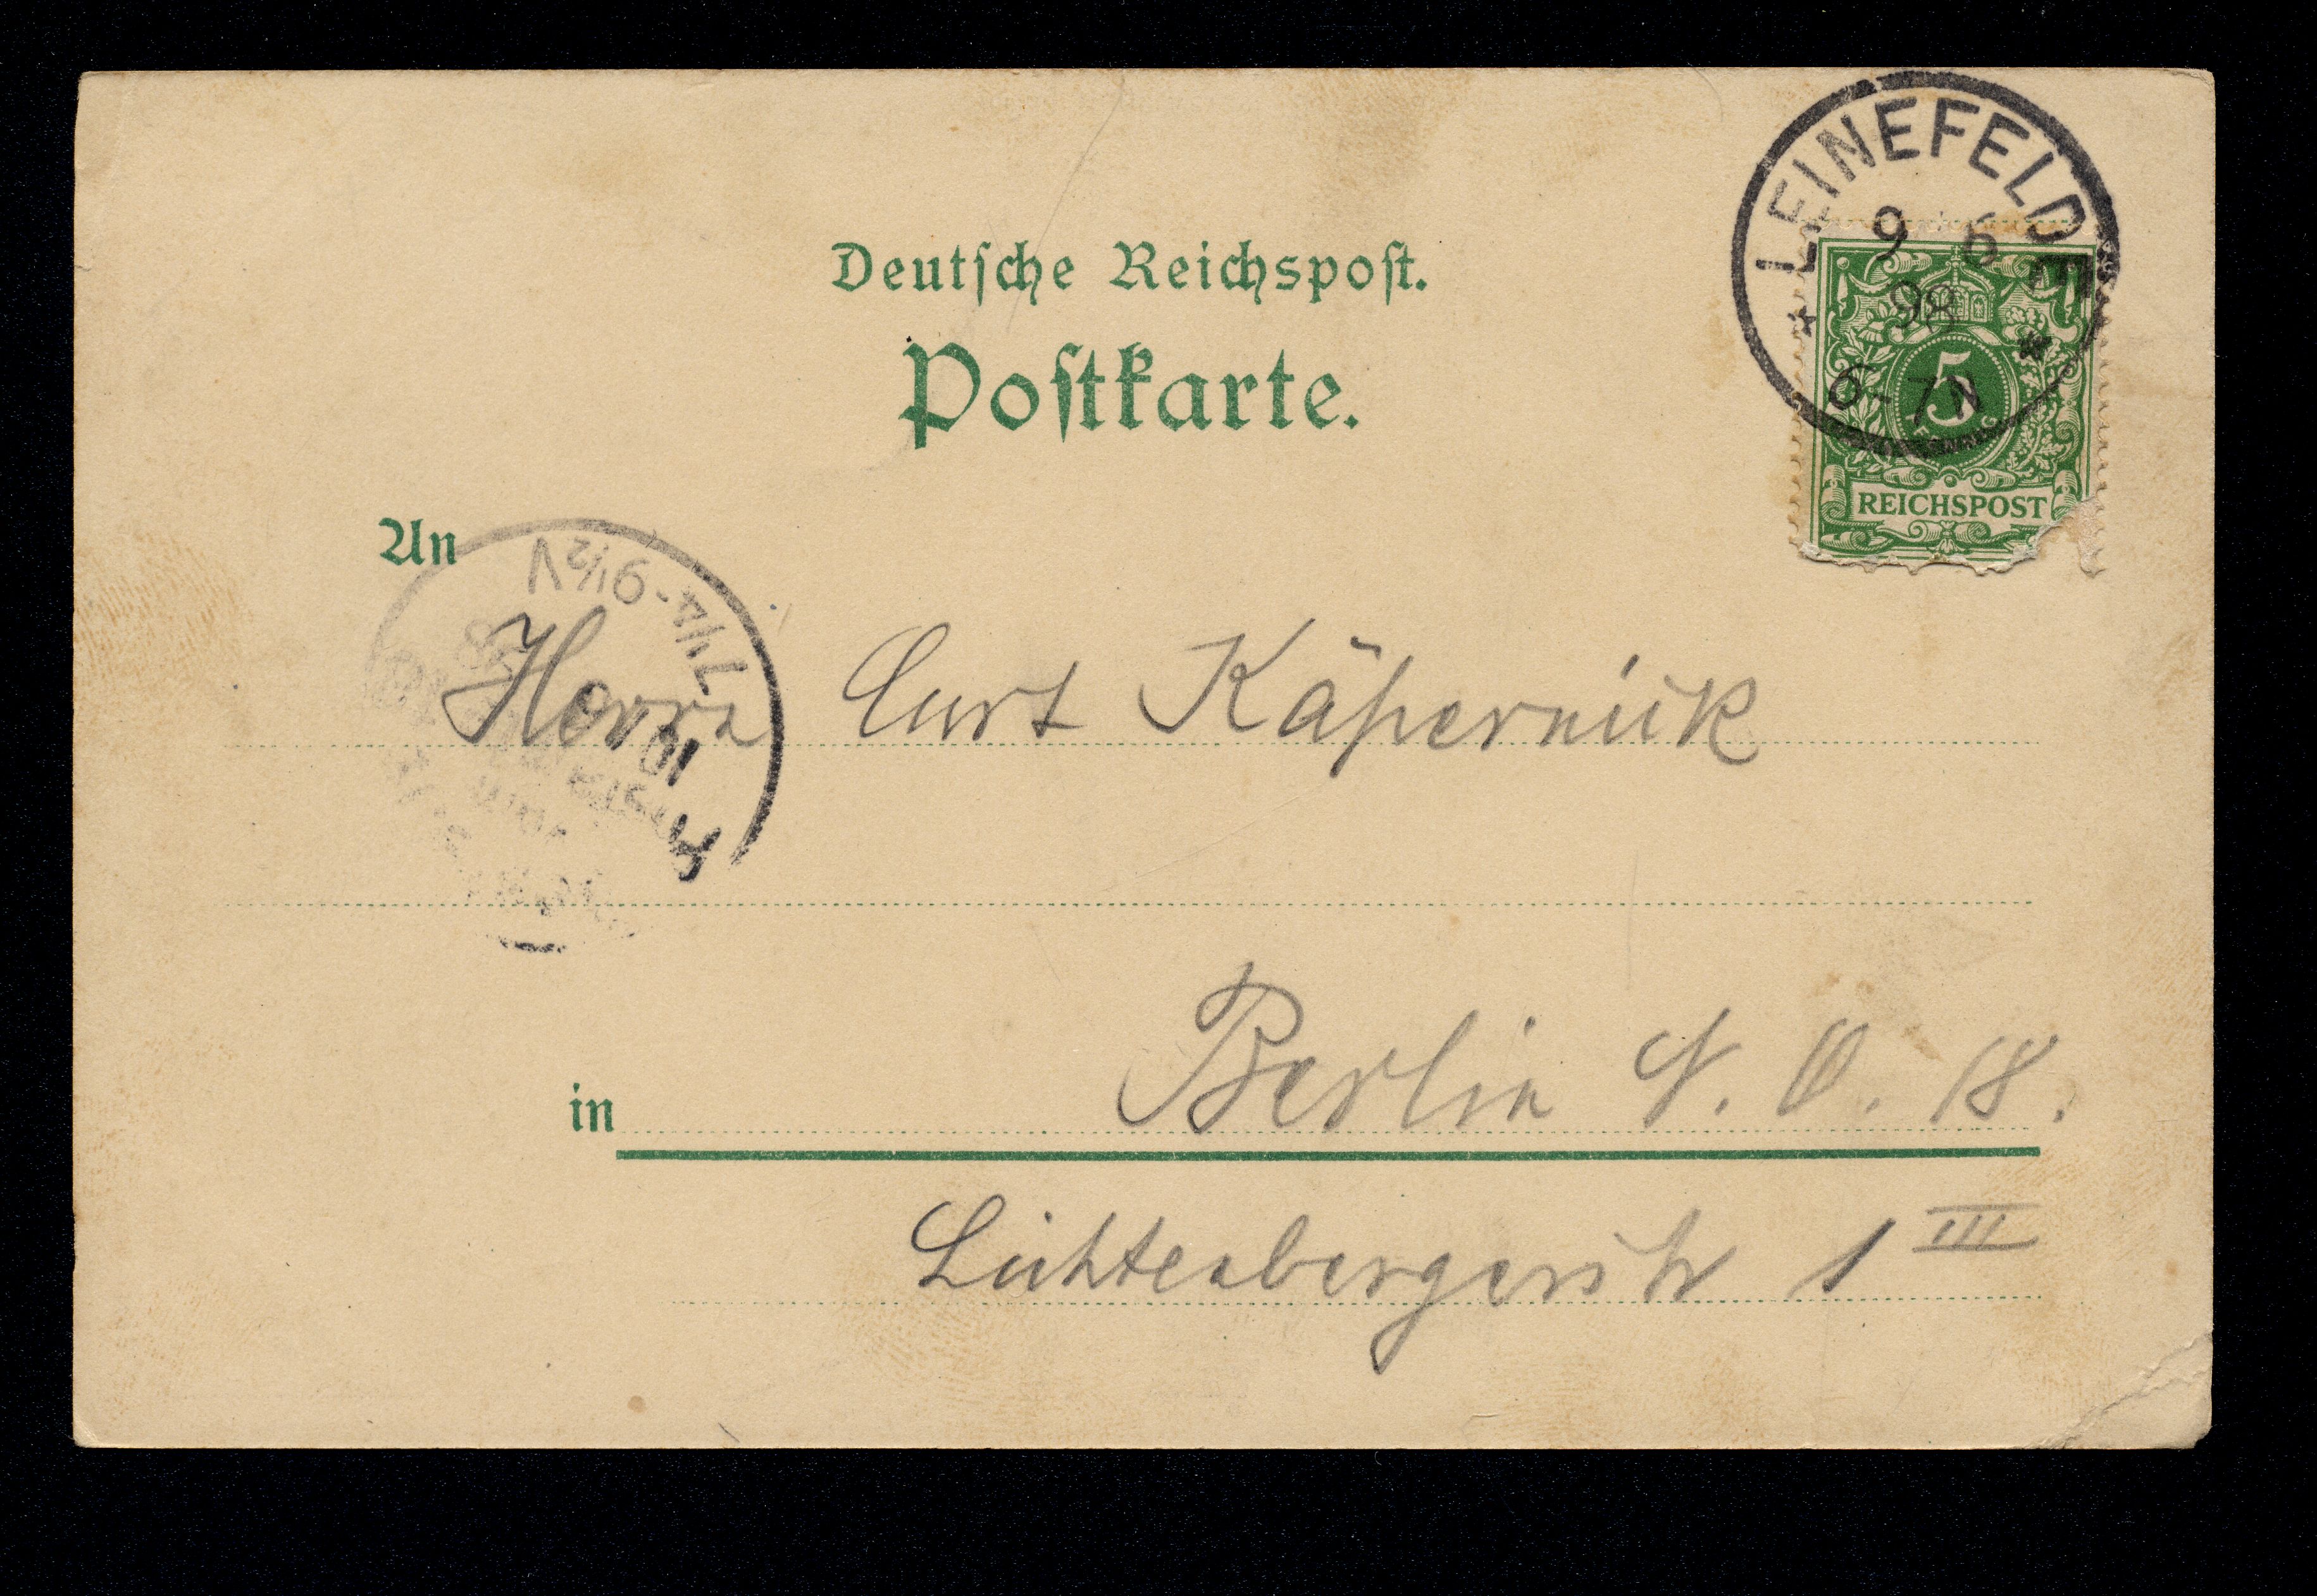 Deutsche Reichspost.
Postkarte.
LEINEFELDE
9 6
98
6-7N
5
REICHSPOST
An
7 1/4-9 1/2 V
Herrn Curt Käpernick
in Berlin N. O. 18.
Lichtenbergerstr 1 III